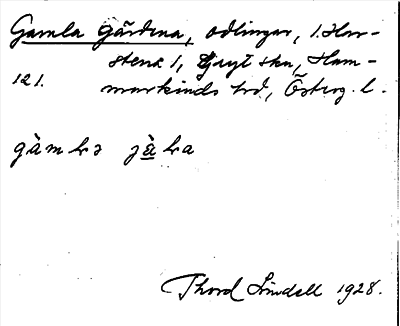 Gamla Gärdena, odlingar, 1. Har-
stena 1, Gryt skn, Ham-
121. markinds hrd, Österg. l.
gàmḷa jä̀ḷa
Thord Lindell 1928.